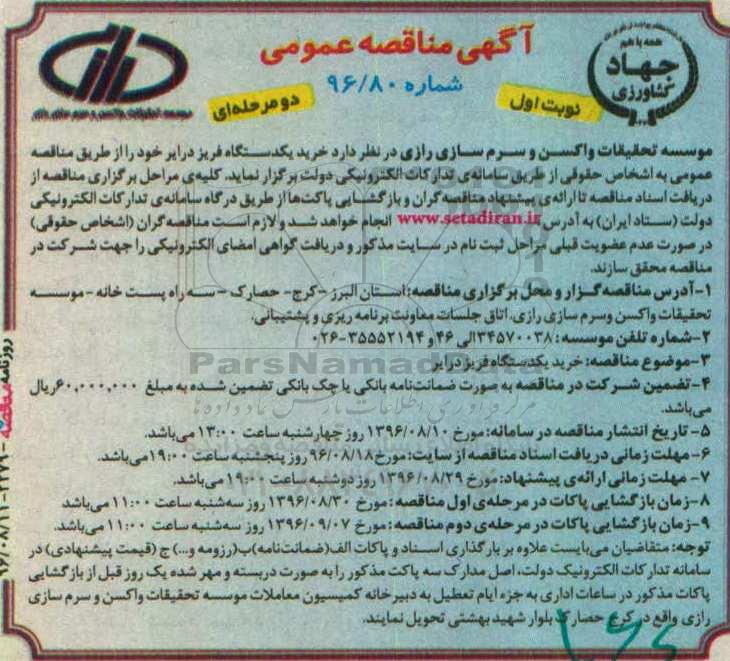 همه با هم
جهاد
کشاورزی
آگهی مناقصه عمومی
شماره ۹۶/۸۰
نوبت اول
دو مرحله‌ای
موسسه تحقیقات واکسن و سرم سازی رازی در نظر دارد خرید یکدستگاه فریز درایر خود را از طریق مناقصه
عمومی به اشخاص حقوقی از طریق سامانه‌ی تدارکات الکترونیکی دولت برگزار نماید. کلیه‌ی مراحل برگزاری مناقصه از
دریافت اسناد مناقصه تا ارائه‌ی پیشنهاد مناقصه‌گران و بازگشایی پاکت‌ها از طریق درگاه سامانه‌ی تدارکات الکترونیکی
دولت (ستاد ایران) به آدرس www.setadiran.ir انجام خواهد شد و لازم است مناقصه گران (اشخاص حقوقی)
در صورت عدم عضویت قبلی مراحل ثبت نام در سایت مذکور و دریافت گواهی امضای الکترونیکی را جهت شرکت در
مناقصه محقق سازند.
۱-آدرس مناقصه‌گزار و محل برگزاری مناقصه: استان البرز -کرج- حصارک - سه راه پست خانه -موسسه
تحقیقات واکسن وسرم سازی رازی، اتاق جلسات معاونت برنامه ریزی و پشتیبانی.
۲-شماره تلفن موسسه: ۳۴۵۷۰۰۳۸الی ۴۶ و ۳۵۵۵۲۱۹۴-۰۲۶
۳-موضوع مناقصه: خرید یکدستگاه فریز درایر
۴-تضمین شرکت در مناقصه به صورت ضمانت‌نامه بانکی یا چک بانکی تضمین شده به مبلغ ۶۰,۰۰۰,۰۰۰ریال
می‌باشد.
۵- تاریخ انتشار مناقصه در سامانه: مورخ ۱۳۹۶/۰۸/۱۰ روز چهارشنبه ساعت ۱۳:۰۰ می‌باشد.
۶-مهلت زمانی دریافت اسناد مناقصه از سایت: مورخ ۹۶/۰۸/۱۸ روز پنجشنبه ساعت ۱۹:۰۰ می‌باشد.
۷- مهلت زمانی ارائه‌ی پیشنهاد: مورخ ۱۳۹۶/۰۸/۲۹ روز دوشنبه ساعت ۱۹:۰۰ می‌باشد.
۸-زمان بازگشایی پاکات در مرحله‌ی اول مناقصه: مورخ ۱۳۹۶/۰۸/۳۰ روز سه‌شنبه ساعت ۱۱:۰۰ می‌باشد
۹-زمان بازگشایی پاکات در مرحله‌ی دوم مناقصه: مورخ ۱۳۹۶/۰۹/۰۷ روز سه‌شنبه ساعت ۱۱:۰۰ می‌باشد.
توجه: متقاضیان می‌بایست علاوه بر بارگذاری اسناد و پاکات الف(ضمانت‌نامه)ب(رزومه و...) ج (قیمت پیشنهادی) در
سامانه تدارکات الکترونیک دولت، اصل مدارک سه پاکت مذکور را به صورت دربسته و مهر شده یک روز قبل از بازگشایی
پاکات مذکور در ساعات اداری به جزء ایام تعطیل به دبیرخانه کمیسیون معاملات موسسه تحقیقات واکسن و سرم سازی
رازی واقع در کرج حصارک بلوار شهید بهشتی تحویل نمایند.
ParsNamadData
روزنامه مناقصه